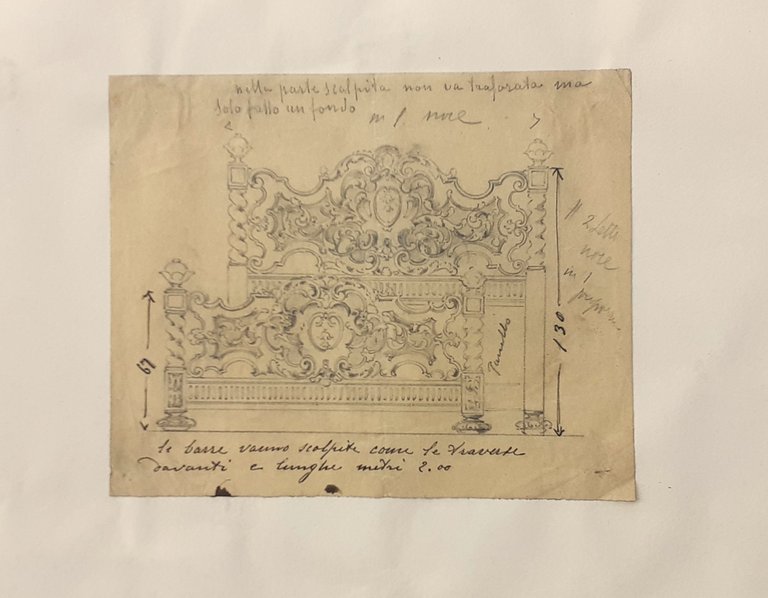 nella parte scolpita non va traforata ma
solo fatto un fondo
in 1 noce
N 2 letti
noce
in 1
67
130
Pannello
le barre vanno scolpite come le traverse
davanti e lunghe metri 2.00